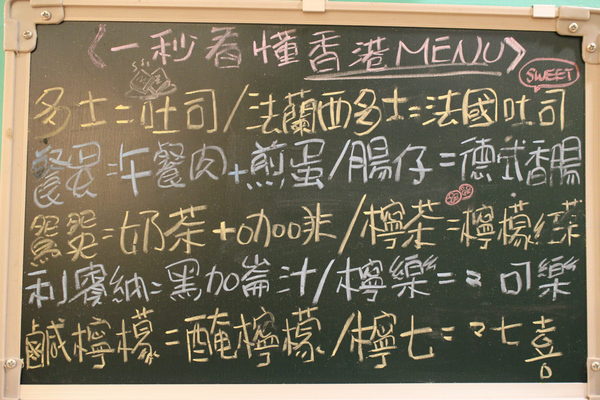 〈一秒看懂香港MENU〉
SWEET
多士=吐司/法蘭西多士=法國吐司
餐蛋=午餐肉+煎蛋/腸仔=德式香腸
鴛鴦=奶茶+咖啡/檸茶=檸檬紅茶
利賓納=黑加崙汁/檸樂=〃可樂
鹹檸檬=醃檸檬/檸七=〃七喜